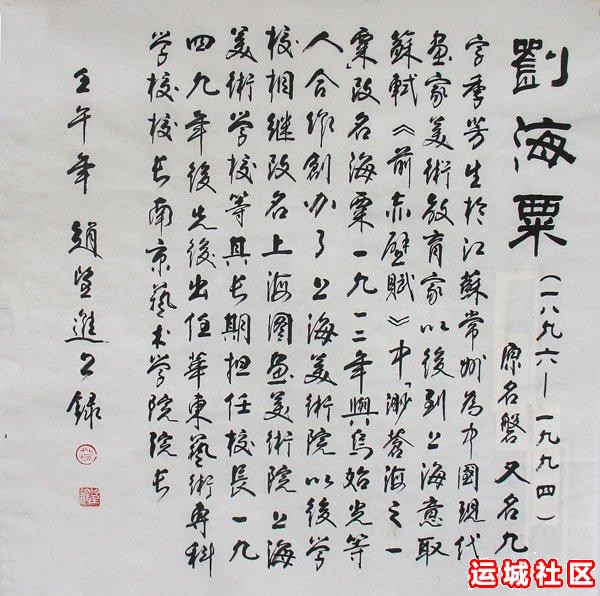 劉海粟
(一八九六—一九九四)
原名磐又名九
字季芳生於江蘇常州為中國現代
画家美術教育家以後到上海意取
蘇軾《前赤壁賦》中「渺蒼海之一
粟改名海粟一九一二年與烏始光等
人合作創办了上海美術院以後学
校相継改名上海图画美術院上海
美術学校等其长期担任校長一九
四九年後先後出任華東藝術專科
学校校长南京藝术学院院长
壬午年 趙 進 録
运城社区